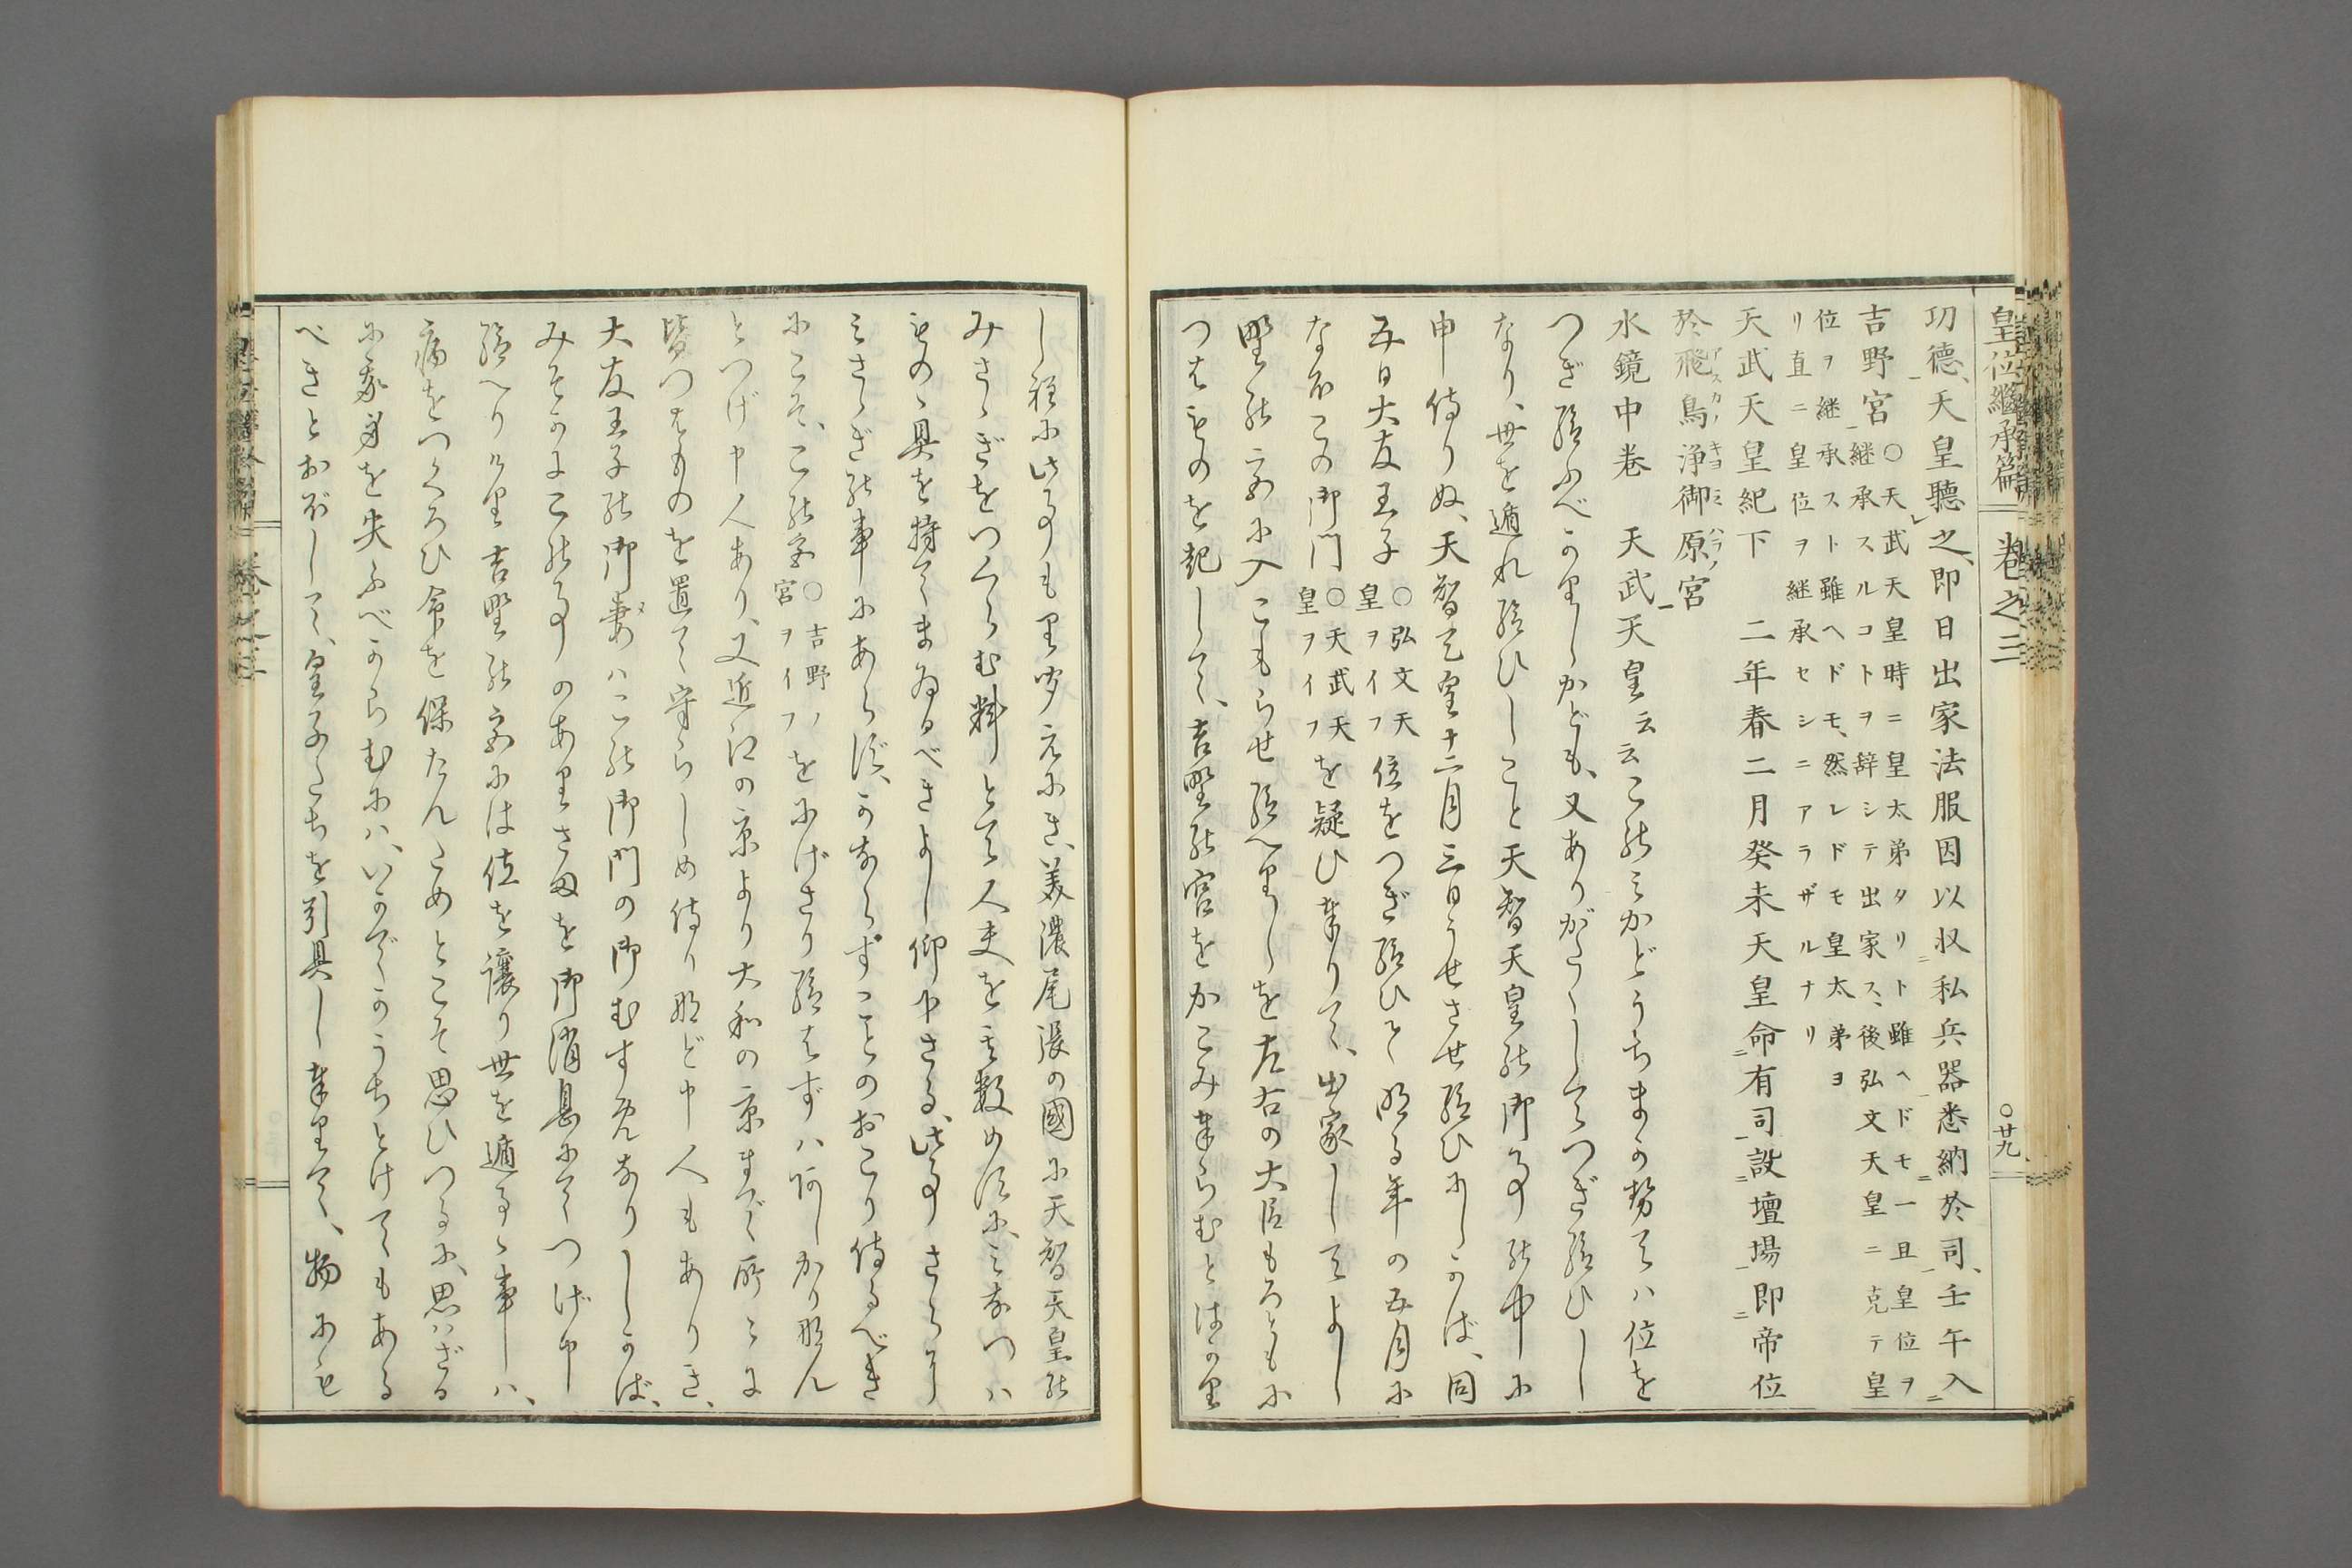 皇位繼承篇 卷之三 ○廿九
功德、天皇聽之、即日出家法服因以収私兵器悉納於司、壬午入
吉野宮
○天武天皇時ニ皇太弟タリト雖ヘドモ一旦皇位ヲ
継承スルコトヲ辞シテ出家ス、後弘文天皇ニ克テ皇
位ヲ継承スト雖ヘドモ、然レドモ皇太弟ヨ
リ直ニ皇位ヲ継承セシニアラザルナリ
天武天皇紀下 二年春二月癸未天皇命有司設壇場即帝位
於飛鳥浄御原宮
水鏡中卷 天武天皇云云この＿みかどうちまかせては位を
つぎ給ふべかりしかども、又ありがたくしてつぎ給ひし
なり、世を遁れ給ひしこと天智天皇の御事の中に
申侍りぬ、天智天皇十二月三日うせさせ給ひにしかば、同
五日大友王子
○弘文天
皇ヲイフ
位をつぎ給ひて明る年の五月に
なほこの御門
○天武天
皇ヲイフ
を疑ひ奉りて、出家してよし
野の宮に入こもらせ給へりしを左右の大臣もろともに
つはものを起して、吉野の宮をかこみ奉らむとはかり
し程に此事もり聞えにき、美濃尾張の國に天智天皇の
みさゝぎをつくらむ料とて人夫を其数めすに、みなつは
ものゝ具を持てまゐるべきよし仰申さる、此事さらに
みさゝぎの事にあらず、かならずことのおこり侍るべき
にこそ、この宮
○吉野ノ
宮ヲイフ
をにげさり給はずはあしかりなん
とつげ申人あり、又近江の京より大和の京まで所々に
皆つはものを置て守らしめ侍りなど申人もありき、
大友王子の御妻はこの御門の御むすめなりしかば、
みそかにこの事のありさまを御消息にてつげ申
給へりけり吉野の宮には位を譲り世を遁るゝ事は、
病をつくろひ命を保たんためとこそ思ひつるに、思はざる
に我身を失ふべからむには、いかでかうちとけてもある
べきとおぼして、皇子たちを引具し奉りて、物にも